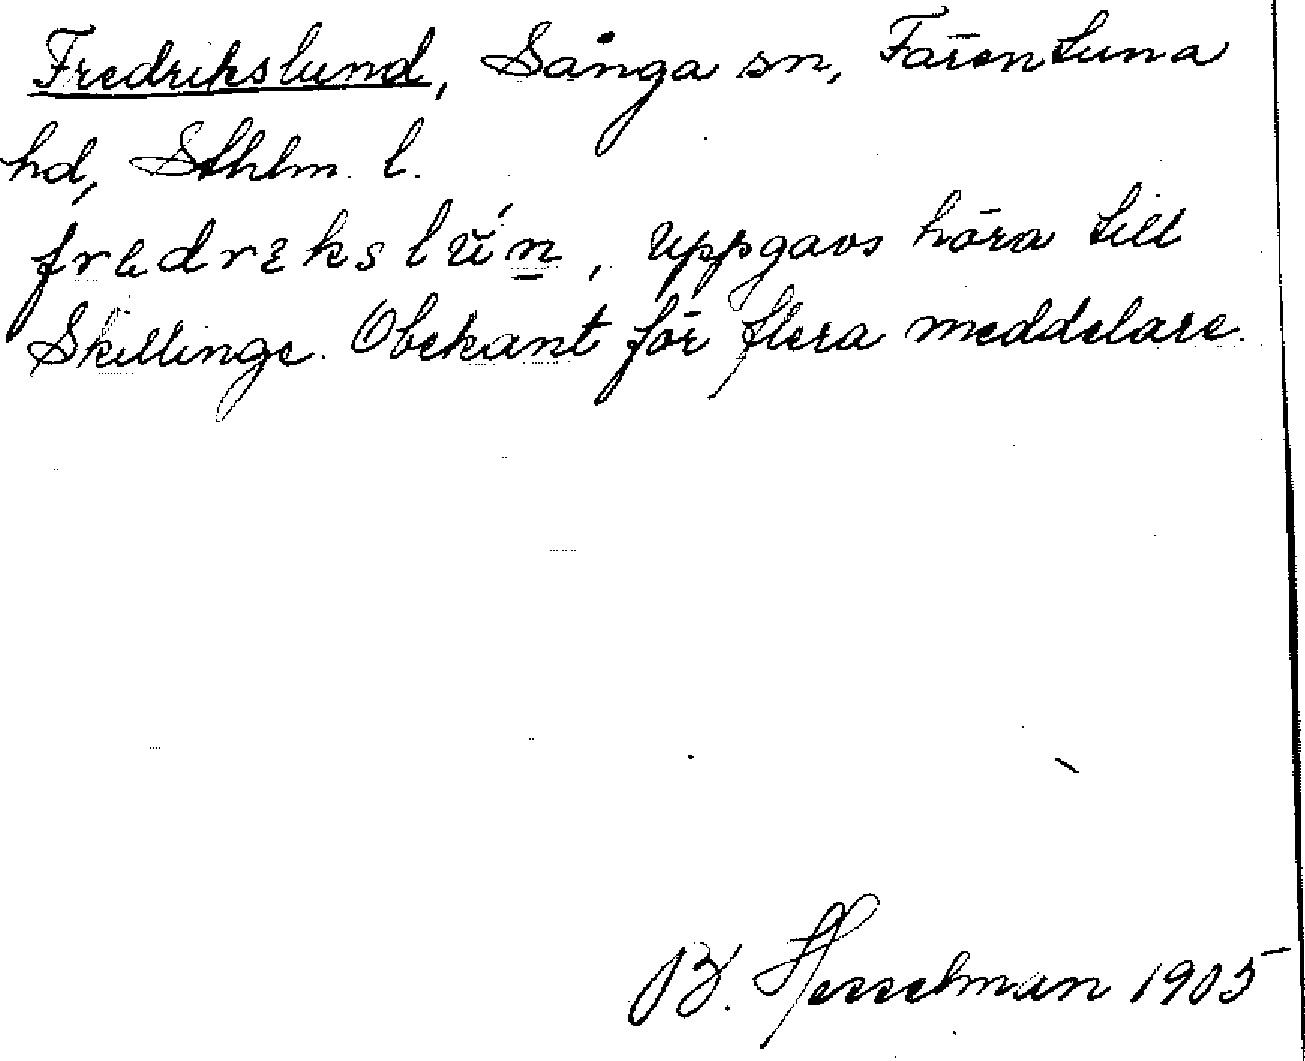 Fredrikslund, Sånga sn, Färentuna
hd, Sthlm. l.
uppgavs höra till
Skillinge. Obekant för flera meddelare.
B. Hesselman 1905